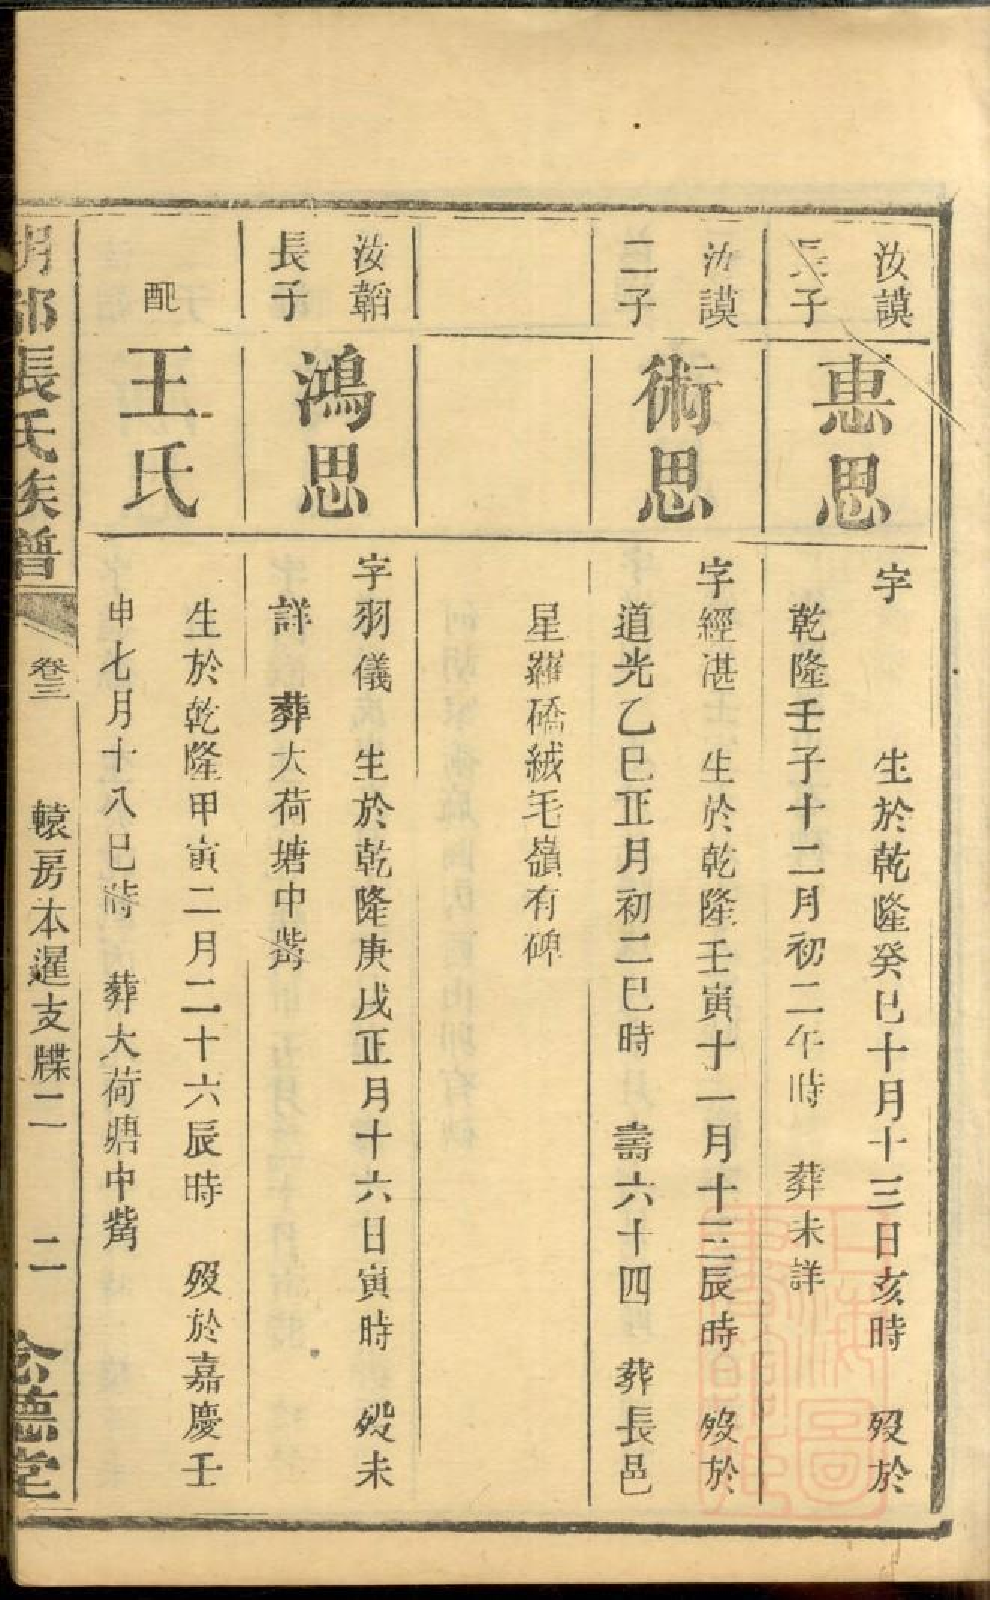 汝謨
長子
惠思
字 生於乾隆癸巳十月十三日亥時 歿於
乾隆壬子十二月初二午時 葬未詳
汝謨
二子
術思
字經湛 生於乾隆壬寅十一月十三辰時 歿於
道光乙巳正月初二巳時 壽六十四 葬長邑
星羅礄絨毛嶺有碑
汝韜
長子
鴻思
字羽儀 生於乾隆庚戌正月十六日寅時 歿未
詳 葬大荷塘中嘴
配
王氏
生於乾隆甲寅二月二十六辰時 歿於嘉慶壬
申七月十八巳時 葬大荷塘中嘴
張氏族譜
卷三
轅房本暹支牒二
二
德堂